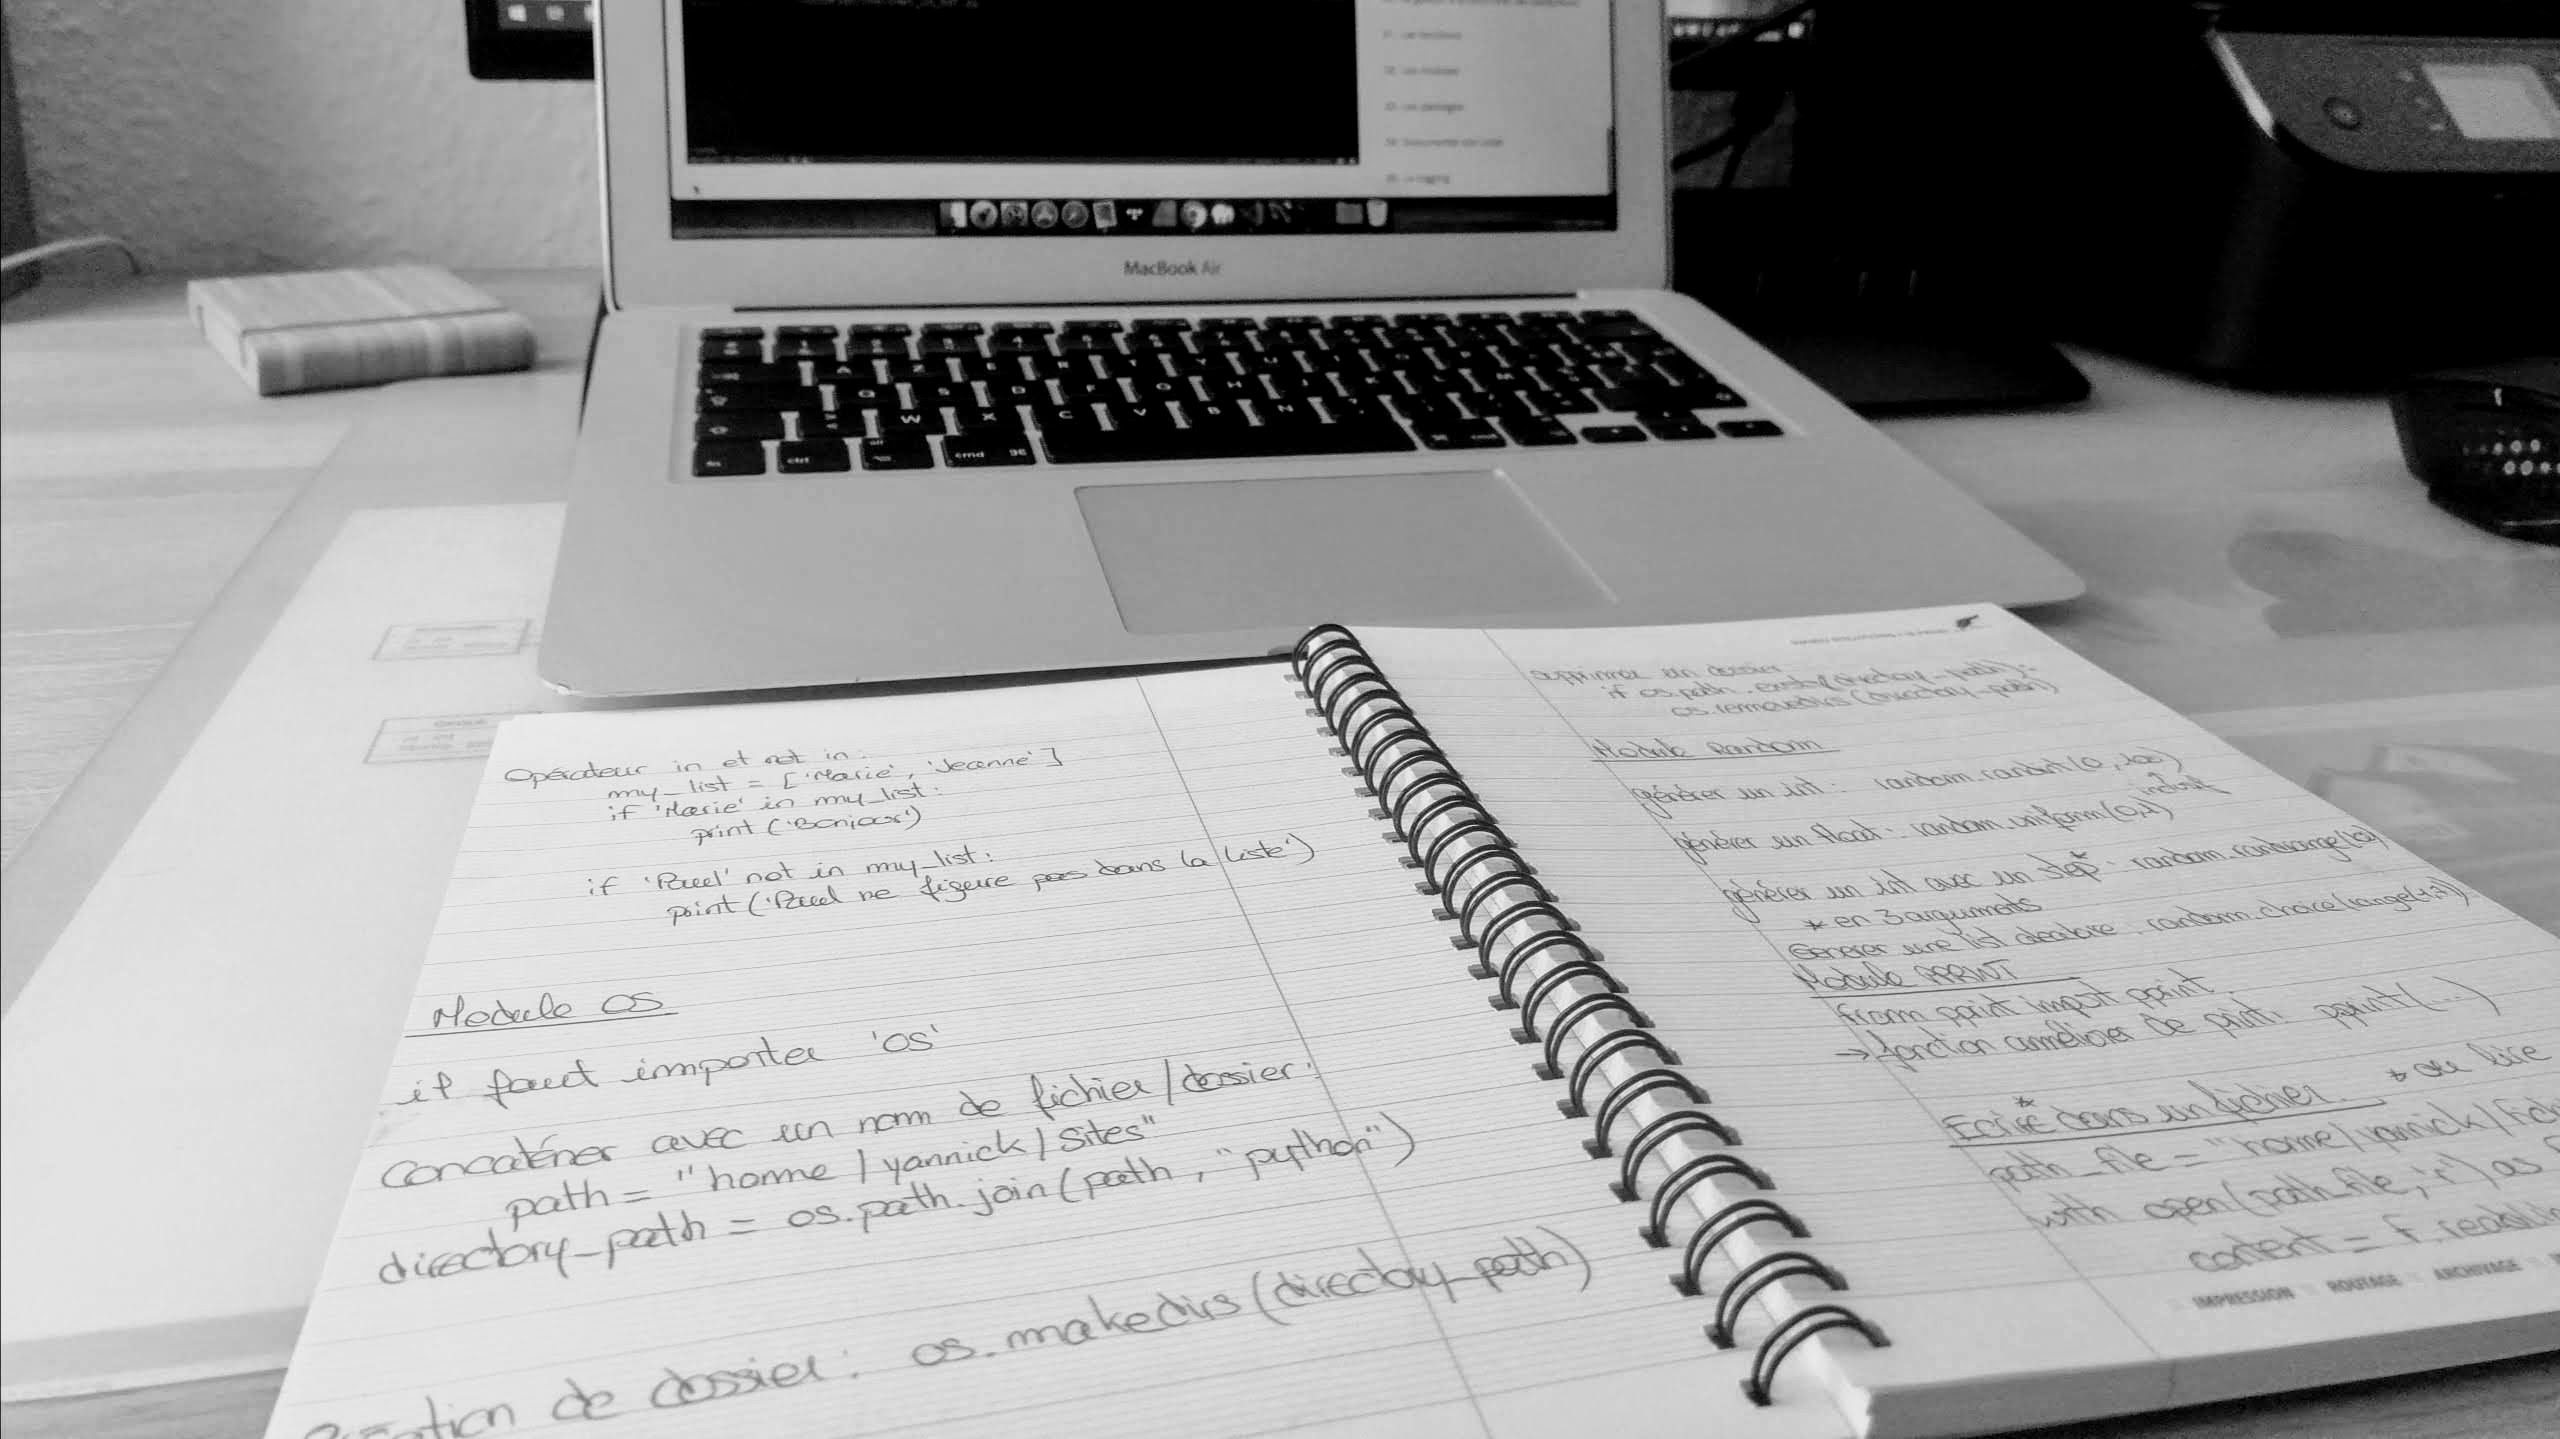 MacBook Air
ctrl
cmd
Opérateur in et not in :
my_list = ['Marie', 'Jeanne']
if 'Marie' in my_list:
print ('Bonjour')
if 'Paul' not in my_list:
print ('Paul ne figure pas dans la liste')
Module OS
il faut importer 'os'
Concaténer avec un nom de fichier/dossier:
path = "home/yannick/Sites"
directory_path = os.path.join(path, "python")
de dossier: os.makedirs(directory_path)
supprimer un dossier
if os.path.exists(directory_path):
os.removedirs(directory_path)
Module Random
générer un int: random.randint(0,100)
inclusif
générer un float: random.uniform(0,1)
générer un int avec un step*: random.randrange(10)
* en 3 arguments
Générer une list : random.choice(range(
Module PPRINT
from pprint import pprint
→ fonction améliorer de print: pprint(...)
Ecrire* dans un fichier * ou lire
path_file = "home/yannick/
with open(path_file, 'r') as f
content = f.
IMPRESSION ROUTAGE ARCHIVAGE